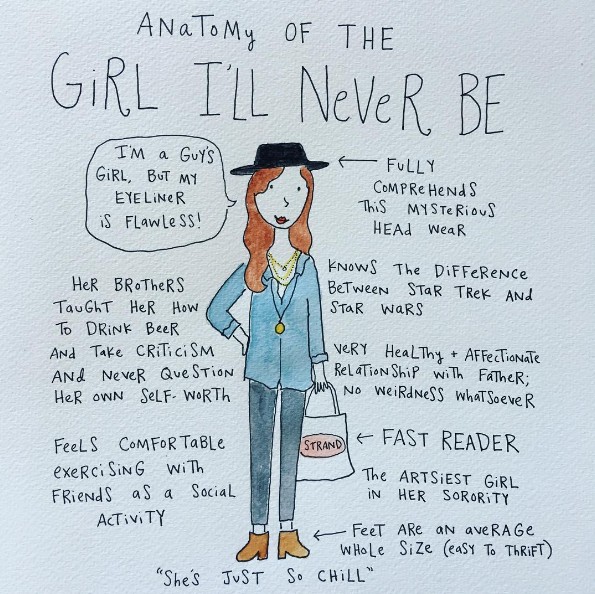 ANATOMY OF THE
GIRL I'LL NEVER BE
I'M A GUY'S
GIRL, BUT MY
EYELINER
IS FLAWLESS!
← FULLY
COMPREHENDS
THIS MYSTERIOUS
HEAD WEAR
HER BROTHERS
TAUGHT HER HOW
TO DRINK BEER
AND TAKE CRITICISM
AND NEVER QUESTION
HER OWN SELF-WORTH
KNOWS THE DIFFERENCE
BETWEEN STAR TREK AND
STAR WARS
VERY HEALTHY + AFFECTIONATE
RELATIONSHIP WITH FATHER;
NO WEIRDNESS WHATSOEVER
FEELS COMFORTABLE
EXERCISING WITH
FRIENDS AS A SOCIAL
ACTIVITY
STRAND
← FAST READER
THE ARTSIEST GIRL
IN HER SORORITY
← FEET ARE AN AVERAGE
WHOLE SIZE (EASY TO THRIFT)
"SHE'S JUST SO CHILL"